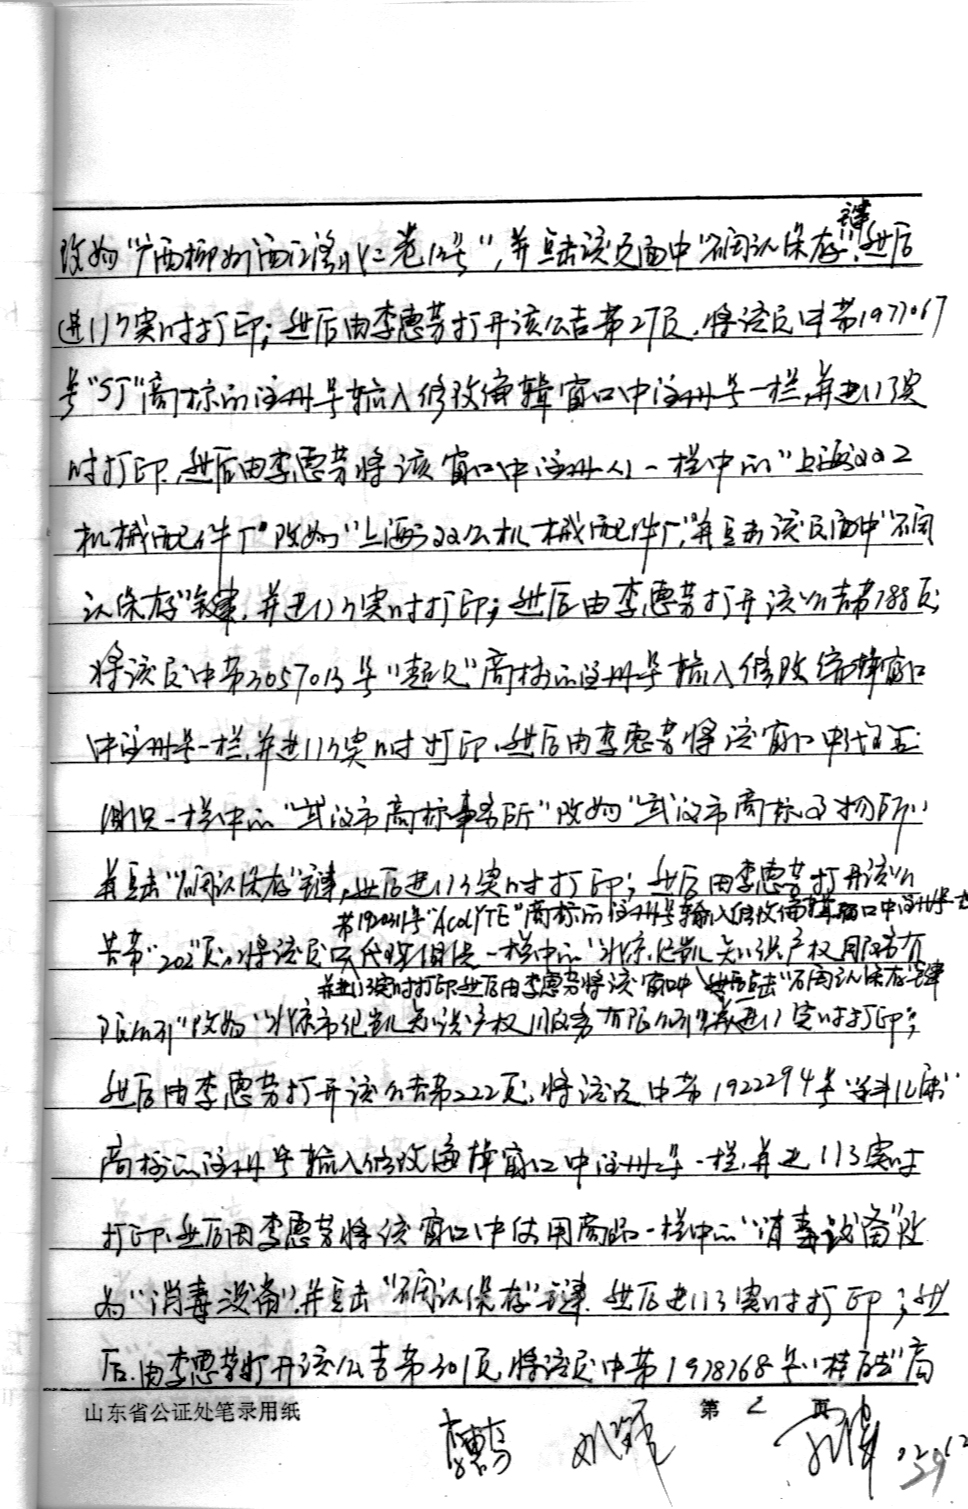 键
改为"广西柳州市西江路一巷12号",并点击该页面中"确认保存",然后
进行了实时打印;然后由李惠芳打开该公告第27页,将该页中第1977067
号"SJ"商标的注册号输入修改编辑窗口中注册号一栏,并进行了实
时打印,然后由李惠芳将该窗口中注册人一栏中的"上海双工
机械配件厂"改为"上海双公机械配件厂",并点击该页面中"确
认保存"键,并进行了实时打印;然后由李惠芳打开该公告第188页,
将该页中第3057013号"超凡"商标的注册号输入修改编辑窗口
中注册号一栏,并进行了实时打印,然后由李惠芳将该窗口中代理
组织一栏中的"武汉市商标事务所"改为"武汉市商标事务所"
并点击"确认保存"键,然后进行了实时打印;然后由李惠芳打开该公
第1920311号"AcolYTE"商标的注册号输入修改编辑窗口中注册号一栏
告第"202"页,将该页代理组织一栏中的"北京纪凯知识产权服务有
并进行实时打印,然后由李惠芳将该窗口中 然后点击"确认保存"键
限公司"改为"北京市纪凯知识产权服务有限公司"并进行实时打印;
然后由李惠芳打开该公告第222页,将该页中第1922294号
商标的注册号输入修改编辑窗口中注册号一栏,并进行了实时
打印,然后由李惠芳将该窗口中使用商品一栏中的"消毒设备"改
为"消毒设备",并点击"确认保存"键,然后进行了实时打印;然
后,由李惠芳打开该公告第301页,将该页中第1978768号 商
山东省公证处笔录用纸
第 2 页
29